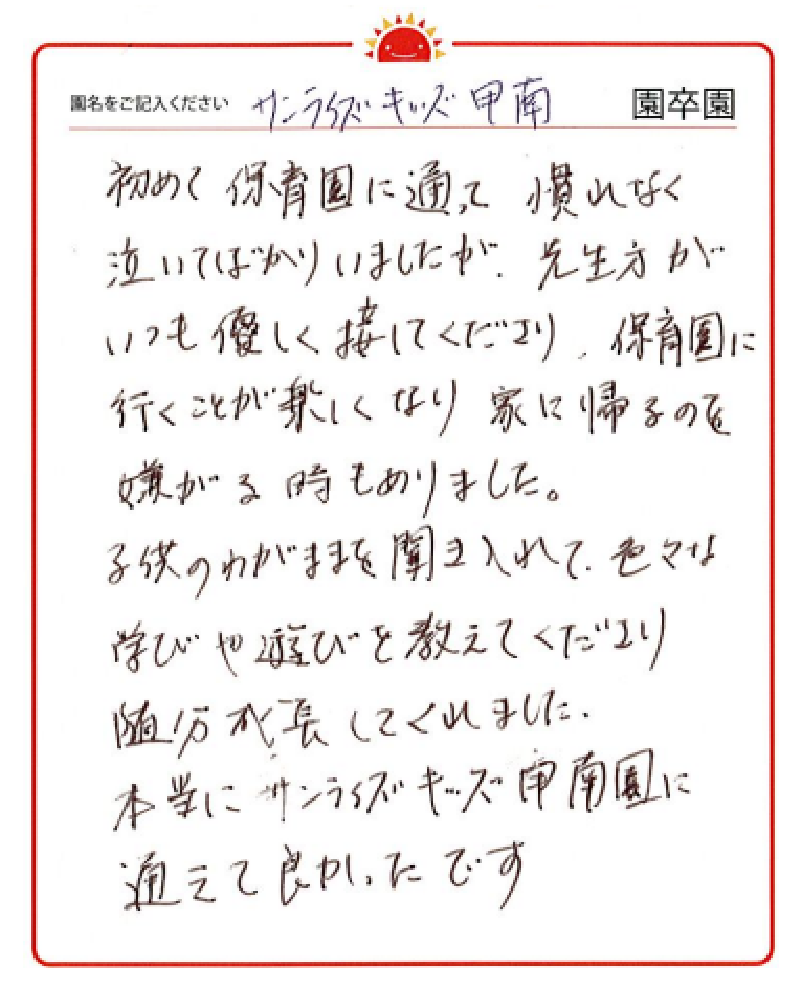 園名をご記入ください サンライズキッズ甲南 園卒園
初めて保育園に通って 慣れなく
泣いてばかりいましたが、先生方が
いつも優しく接してくださり、保育園に
行くことが楽しくなり 家に帰るのを
嫌がる時もありました。
子供のわがままを聞き入れて、色々な
学びや遊びを教えてくださり
随分成長してくれました。
本当にサンライズキッズ甲南園に
通えて良かったです